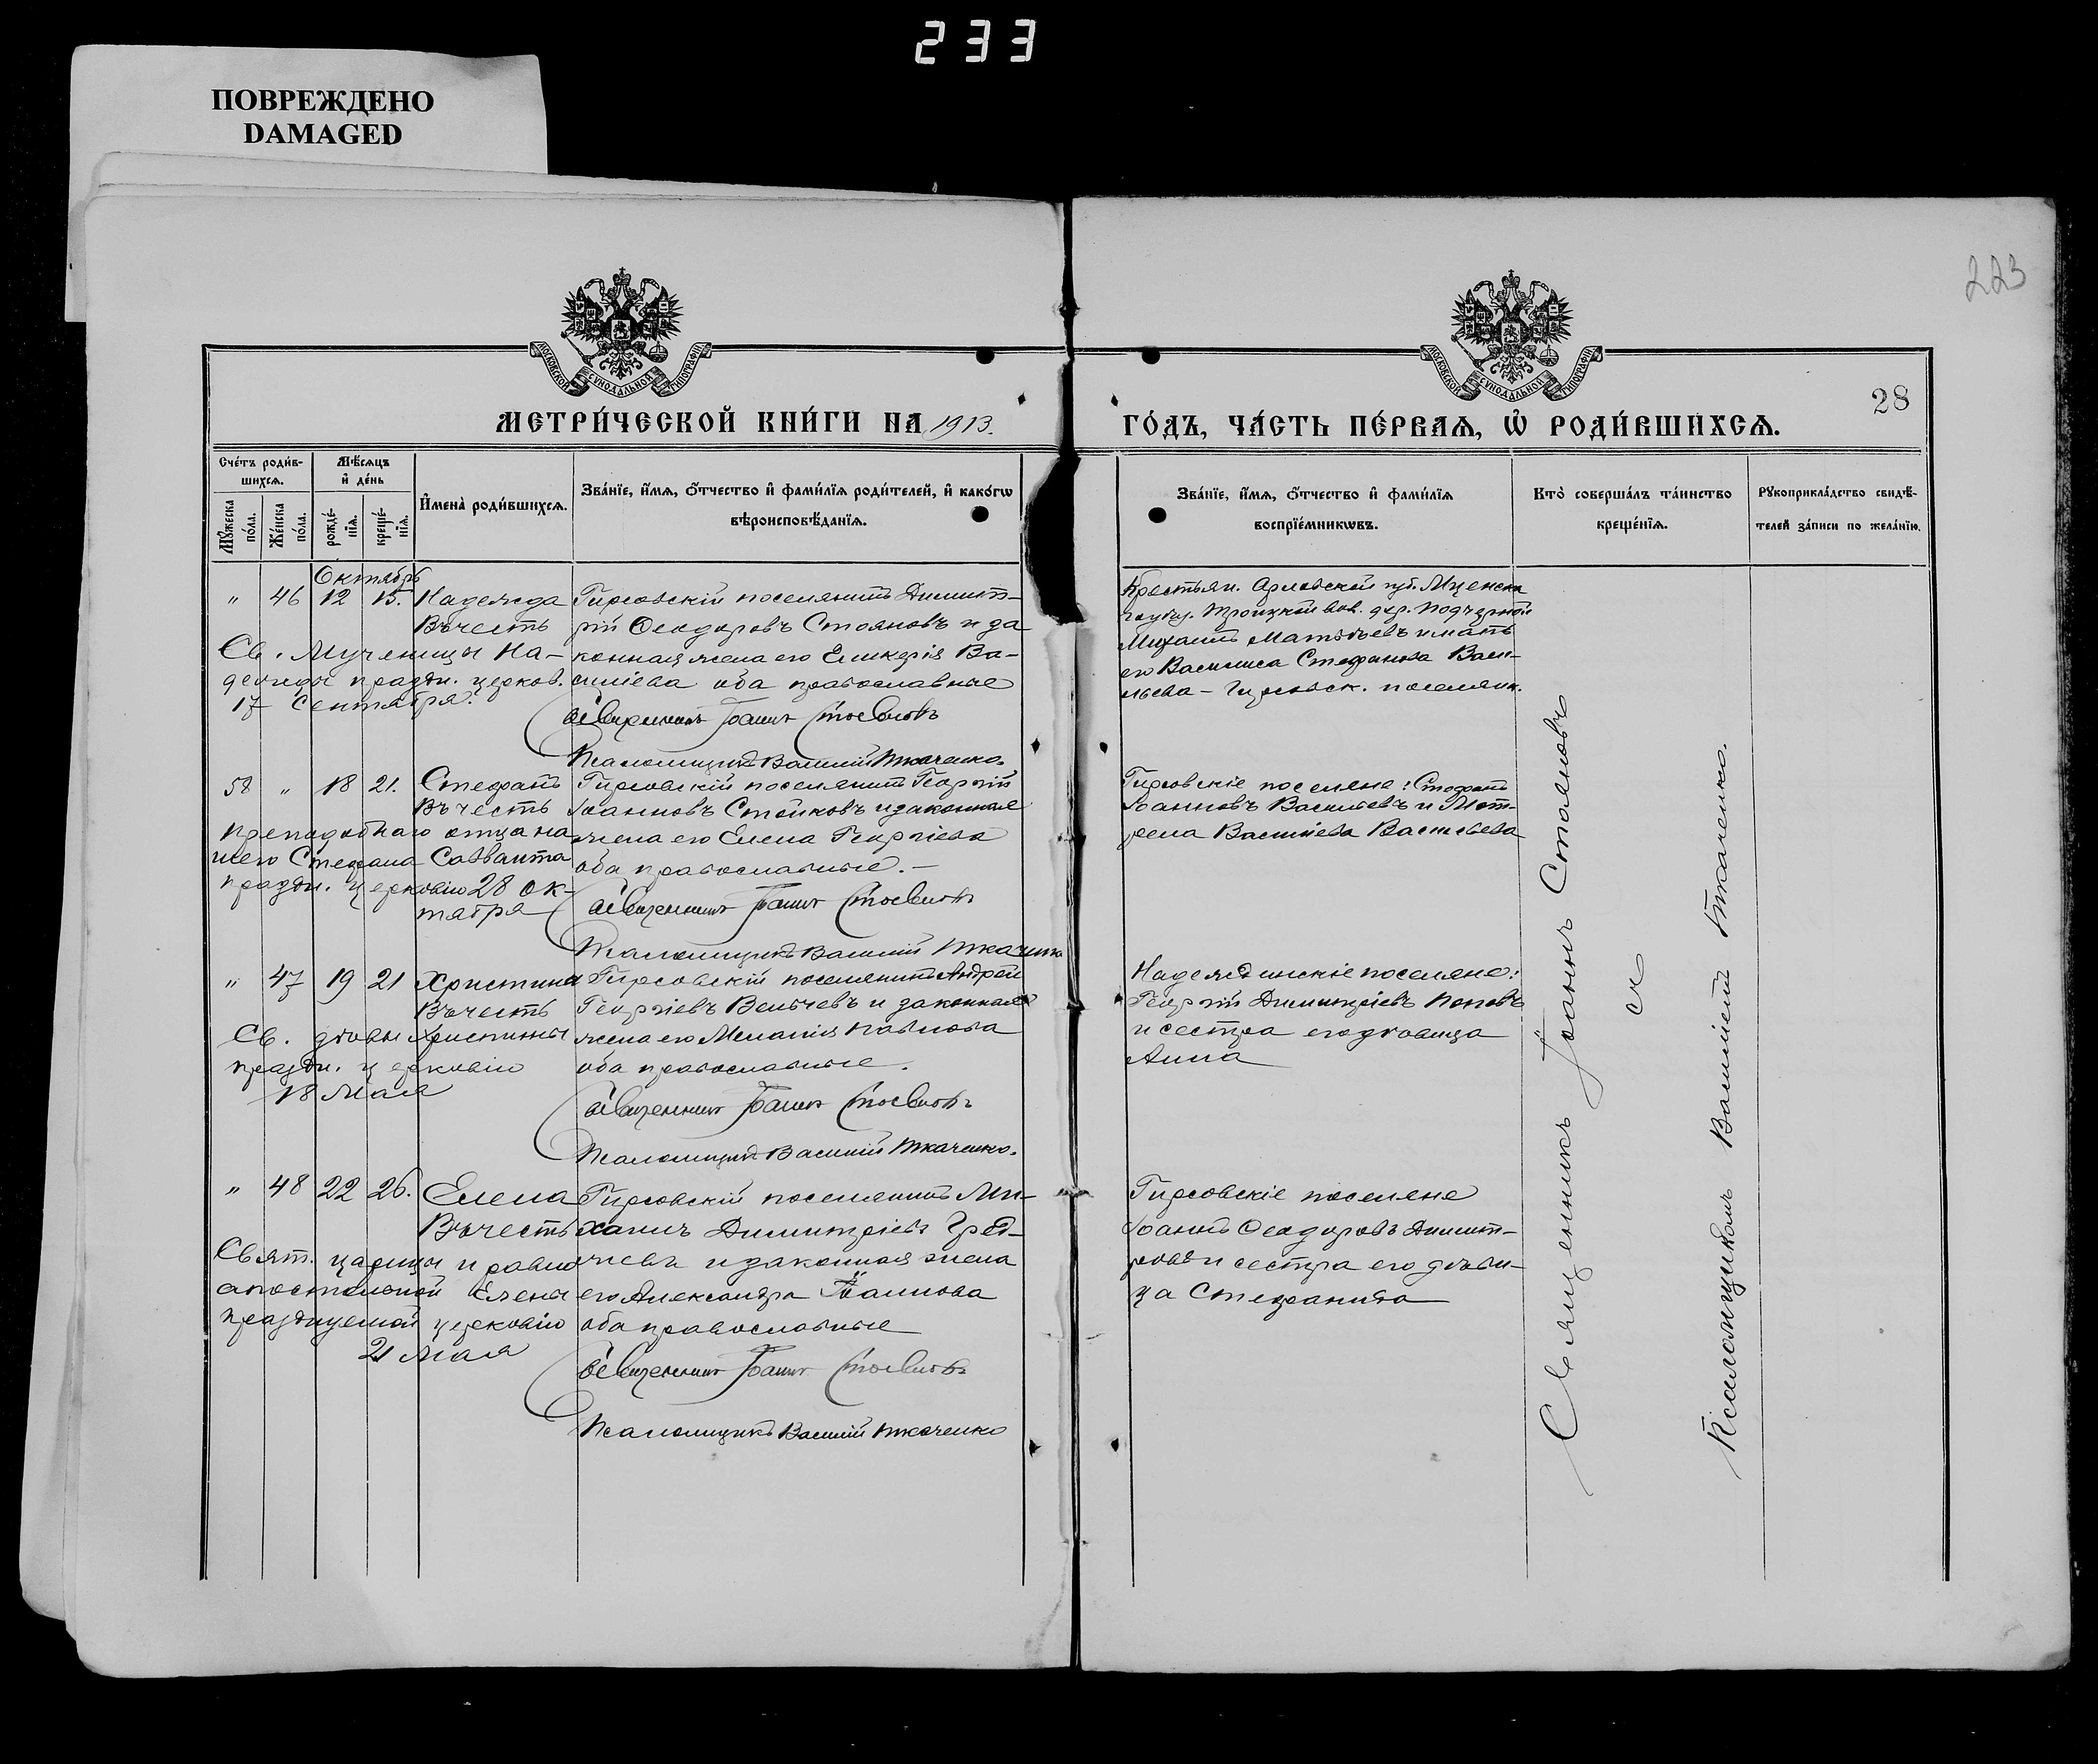 233
ПОВРЕЖДЕНО
DAMAGED
223
МОСКОВСКОЙ СУНОДАЛЬНОЙ ТИПОГРАФІИ
МОСКОВСКОЙ СУНОДАЛЬНОЙ ТИПОГРАФІИ
28
МЕТРИ́ЧЕСКОЙ КНИ́ГИ НА 1913.
ГО́ДЪ, ЧА́СТЬ ПЕ́РВАЯ, Ѽ РОДИ́ВШИХСЯ.
Сче́тъ роди́в-
шихся.
Мѣ́сяцъ
и҆ де́нь
Мꙋ́жеска по́ла.
Же́нска по́ла.
рожде́-нїя.
креще́-нїя.
И҆мена̀ роди́вшихся.
Зва́нїе, и҆́мя, ѻ҆́тчество и҆ фами́лїя роди́телей, и҆ како́гѡ
вѣроисповѣ́данїя.
Зва́нїе, и҆́мя, ѻ҆́тчество и҆ фами́лїя
воспрїе́мникѡвъ.
Кто̀ соверша́лъ та́инство
креще́нїя.
Рꙋкоприкла́дство свидѣ́-
телей за́писи по жела́нїю.
Октябрь
" 46 12 13. Надежда
Въ честь
Св. Мученицы На-
дежды праздн. церков.
17 Сентября.
Гирсовскій поселянинъ Димит-
рій Ѳеодоровъ Стояновъ и за
конная жена его Гликерія Ва-
силіева оба православные
Священникъ Іоаннъ Стояновъ
Псаломщикъ Василій Ткаченко.
Крестьян. Орловской губ. Мценска
го уѣзд. Троицкой вол. дер.
Михаилъ Матѳѣевъ и мать
его Василиса Стефанова Васи-
льева - Гирсовск. поселянк.
58 " 18 21. Стефанъ
Въ честь
преподобнаго отца на
шего Стефана Савваита
праздн. церковію 28 ок-
тября
Гирсовскій поселянинъ Георгій
Іоанновъ Стойковъ и законная
жена его Елена Георгіева
оба православные. -
Священникъ Іоаннъ Стояновъ
Псаломщикъ Василій Ткаченко
Гирсовскіе поселяне: Стефанъ
Іоанновъ Васильевъ и Мот-
рена Василіева Васильева
" 47 19 21 Христина
Въ честь
Св. дѣвы Христины
праздн. церковію
18 Мая
Гирсовскій поселянинъ Андрей
Георгіевъ Велічевъ и законная
жена его Меланія Павлова
оба православные.
Священникъ Іоаннъ Стояновъ
Псаломщикъ Василій Ткаченко.
Надеждинскіе поселяне:
Георгій Димитріевъ Поповъ
и сестра его дѣвица
Анна
" 48 22 26. Елена
Въ честь
Свят. царицы и равно
апостольной Елены
празднуемой церковію
21 Мая
Гирсовскій поселянинъ Ми-
хаилъ Димитріевъ
и законная жена
его Александра Іоаннова
оба православные
Священникъ Іоаннъ Стояновъ
Псаломщикъ Василій Ткаченко
Гирсовскіе поселяне
Іоаннъ Ѳеодоровъ Димит-
ровъ и сестра его дѣви-
ца Стефанида
Священникъ Іоаннъ Стояновъ
съ
Псаломщикомъ Василіемъ Ткаченко.